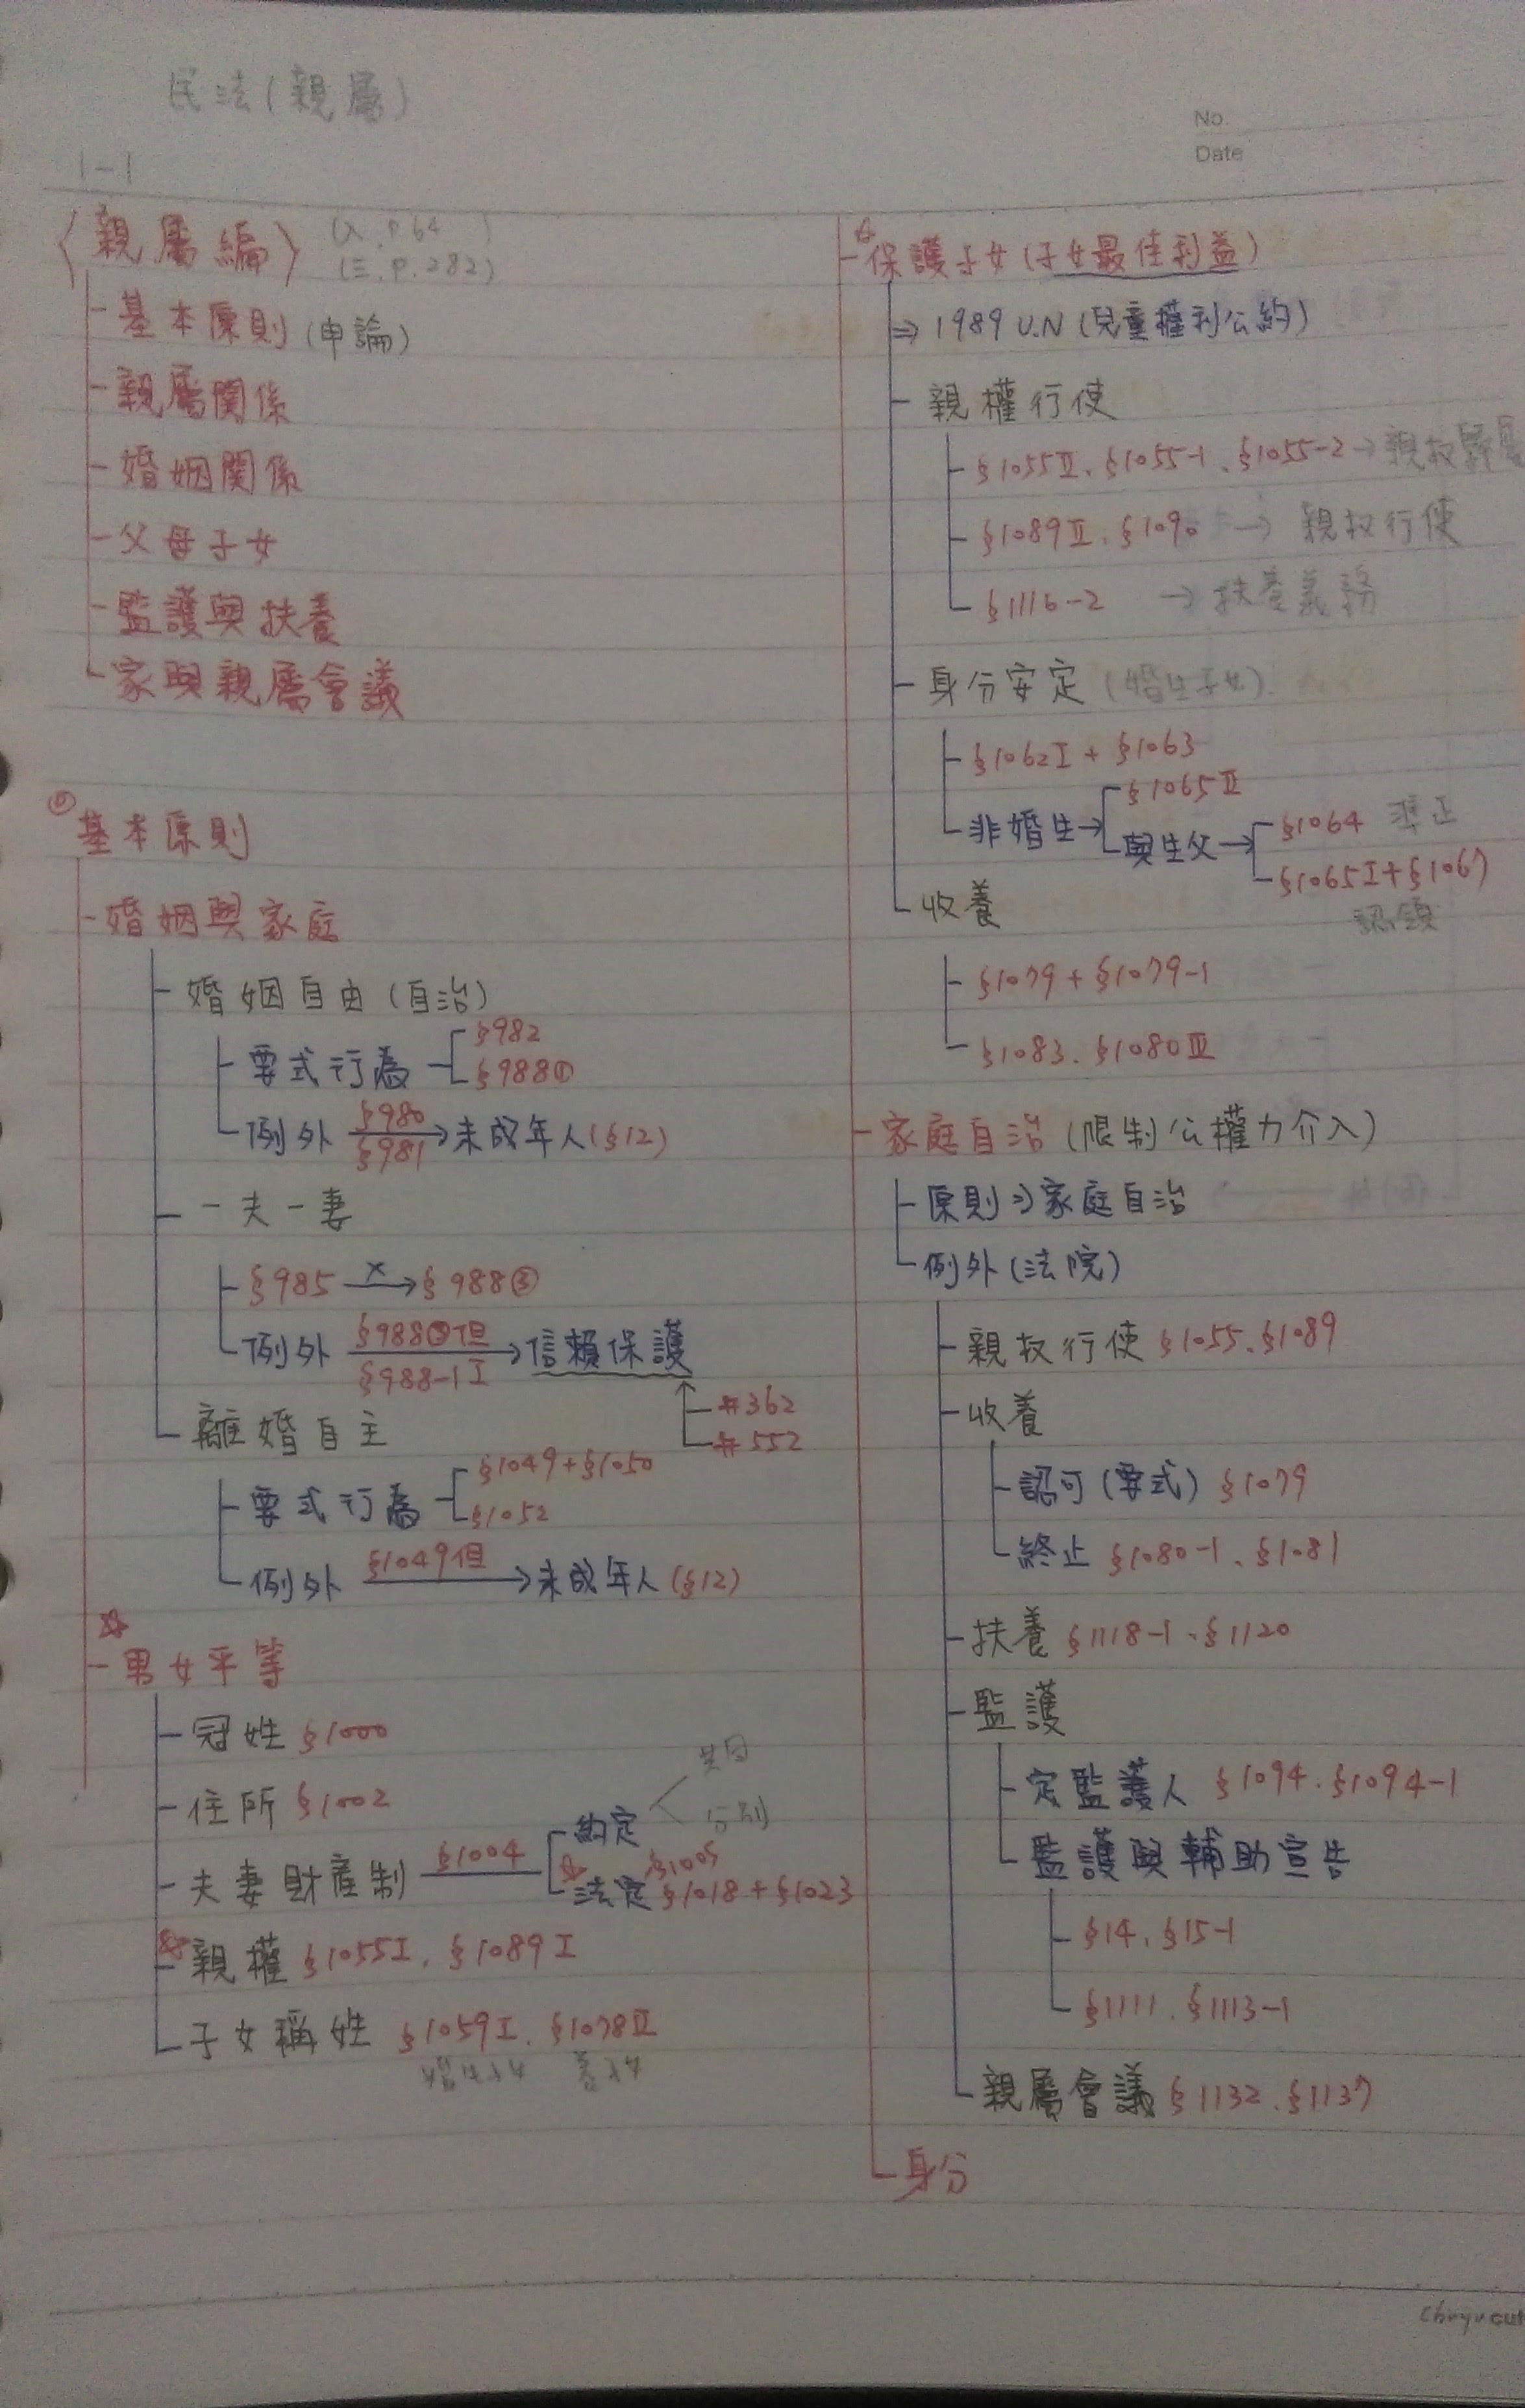 民法(親屬)
No.
Date
1-1
〈親屬編〉
(入.P.64 )
(三.P.282)
基本原則(申論)
親屬關係
婚姻關係
父母子女
監護與扶養
家與親屬會議
基本原則
婚姻與家庭
婚姻自由(自治)
要式行為
§982
§988①
例外 §980 §981 → 未成年人(§12)
一夫一妻
§985 ×→ §988③
例外 §988③但 §988-1Ⅰ → 信賴保護
#362
#552
離婚自主
要式行為
§1049+§1050
§1052
例外 §1049但 → 未成年人(§12)
☆
男女平等
冠姓 §1000
住所 §1002
夫妻財產制 §1004
約定
共同
分別
☆法定 §1005
§1018+§1023
☆親權 §1055Ⅰ、§1089Ⅰ
子女稱姓 §1059Ⅰ、§1078Ⅱ
婚生子女 養子女
☆保護子女(子女最佳利益)
⇒ 1989 U.N(兒童權利公約)
親權行使
§1055Ⅱ、§1055-1、§1055-2→親权歸屬
§1089Ⅱ、§1090 → 親权行使
§1116-2 → 扶養義務
身分安定(婚生子女)
§1062Ⅰ+§1063
非婚生→
§1065Ⅱ
與生父→
§1064 準正
§1065Ⅰ+§1067
認領
收養
§1079+§1079-1
§1083、§1080Ⅲ
家庭自治(限制公權力介入)
原則⇒家庭自治
例外(法院)
親权行使 §1055、§1089
收養
認可(要式) §1079
終止 §1080-1、§1081
扶養 §1118-1、§1120
監護
定監護人 §1094、§1094-1
監護與輔助宣告
§14、§15-1
§1111、§1113-1
親屬會議 §1132、§1137
身分